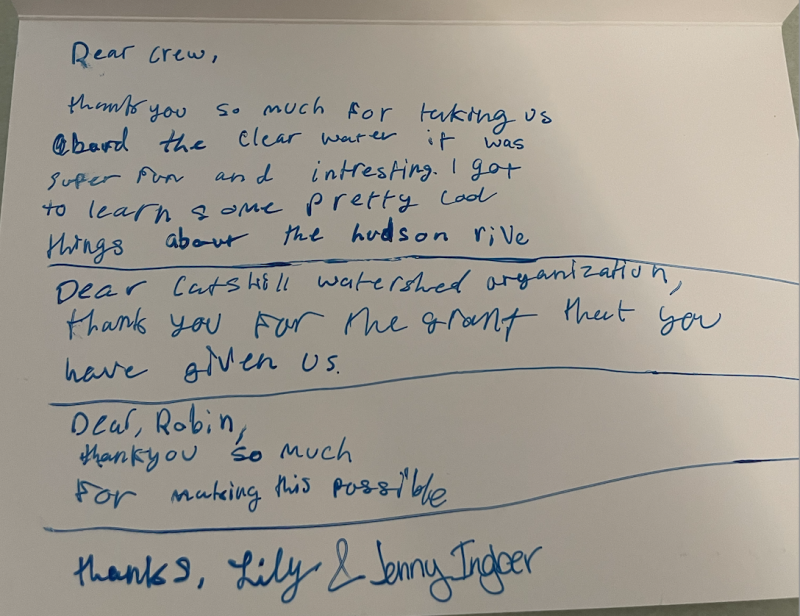 Dear crew,
thank you so much for taking us
abord the clear water it was
super fun and intresting. I got
to learn some pretty cool
things about the hudson rive
Dear Catskill watershed organization,
thank you for the grant that you
have given us.
Dear, Robin,
thankyou so much
for making this possible
thanks, Lily & Jenny